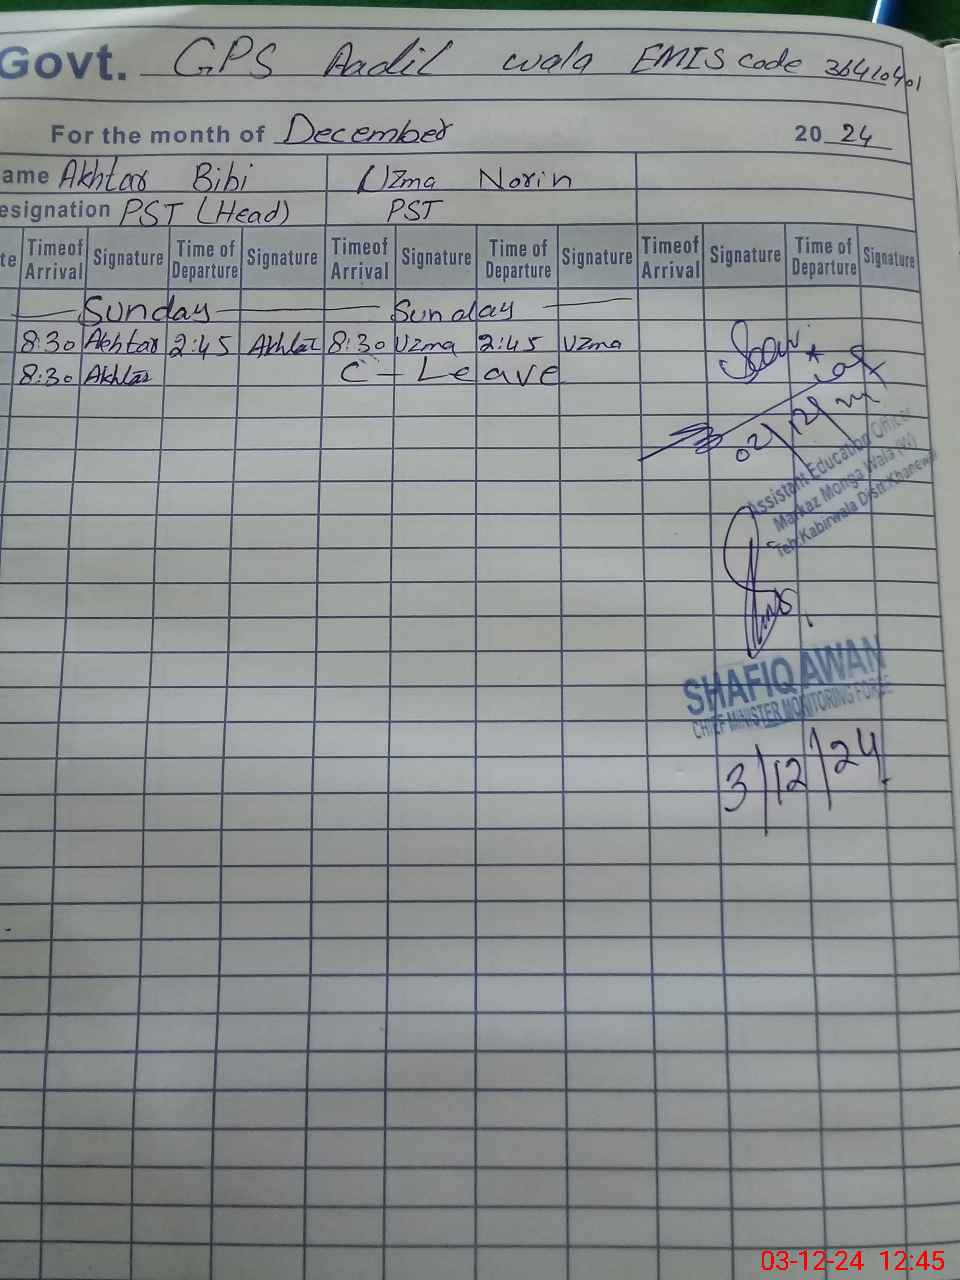 Govt. GPS Aadil wala EMIS code 36410401
For the month of December 2024
ame Akhtar Bibi Uzma Norin
esignation PST (Head) PST
te Timeof Arrival Signature Time of Departure Signature Timeof Arrival Signature Time of Departure Signature Timeof Arrival Signature Time of Departure Signature
Sunday Sunday
8:30 Akhtar 2:45 Akhtar 8:30 Uzma 2:45 Uzma
8:30 Akhtar C-Leave
02/12/24
Assistant Education Officer
Markaz Monga Wala (W)
Teh:Kabirwala Distt:Khanewal
SHAFIQ AWAN
CHIEF MINISTER MONITORING FORCE
3/12/24
03-12-24 12:45